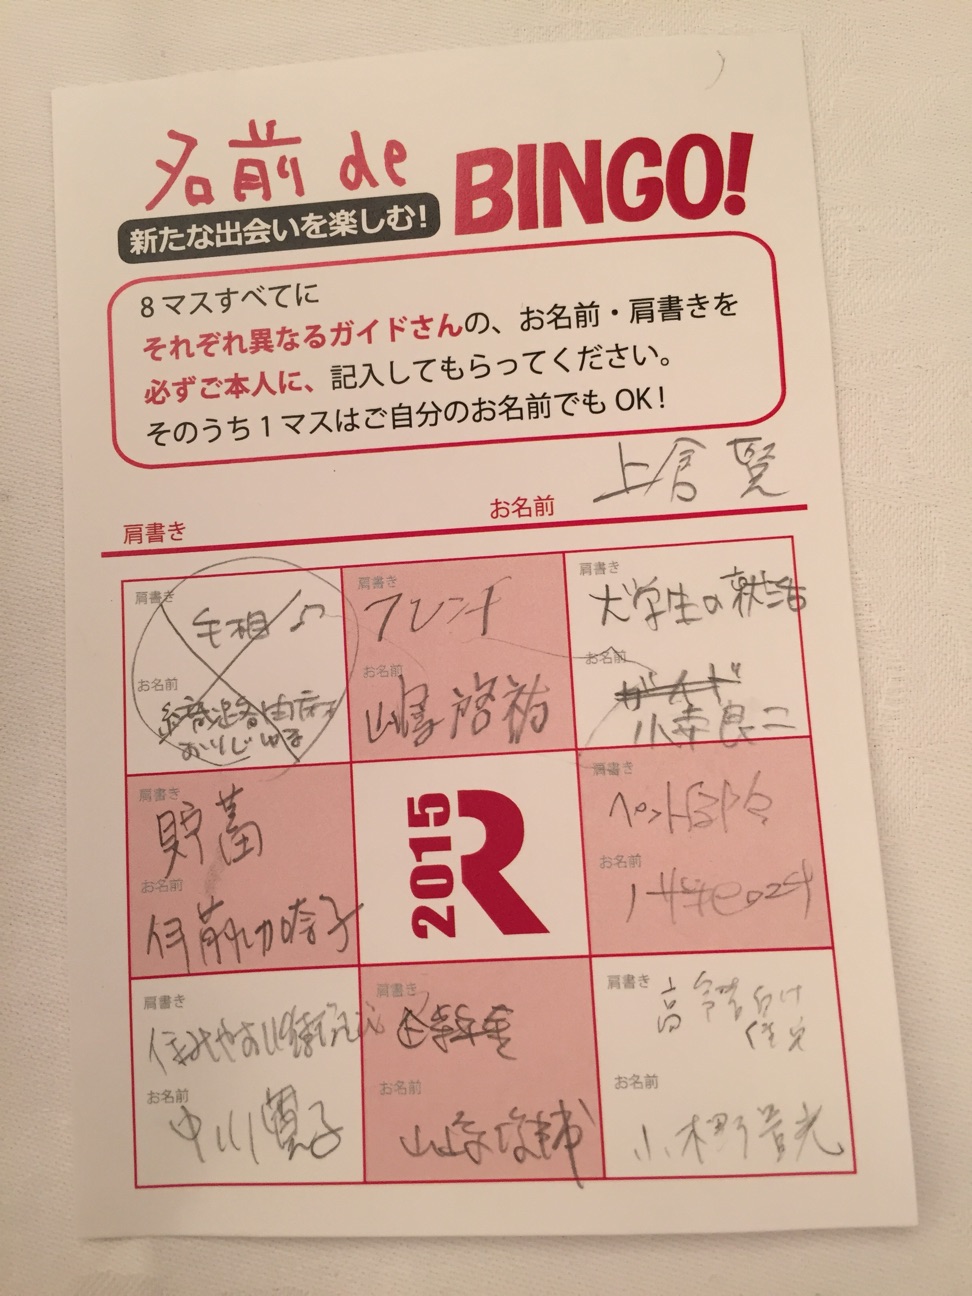 名前 de BINGO!
新たな出会いを楽しむ!
8マスすべてに
それぞれ異なるガイドさんの、お名前・肩書きを
必ずご本人に、記入してもらってください。
そのうち1マスはご自分のお名前でもOK!
肩書き
お名前 上倉 賢
肩書き
手相
お名前
肩書き
フレンチ
お名前
肩書き
大学生の就活
お名前
ガイド
小寺良二
肩書き
貯蓄
お名前
伊藤加奈子
2015 R
肩書き
お名前
肩書き
お名前
中川寛子
肩書き
お名前
山崎俊輔
肩書き
高齢者向け
住宅
お名前